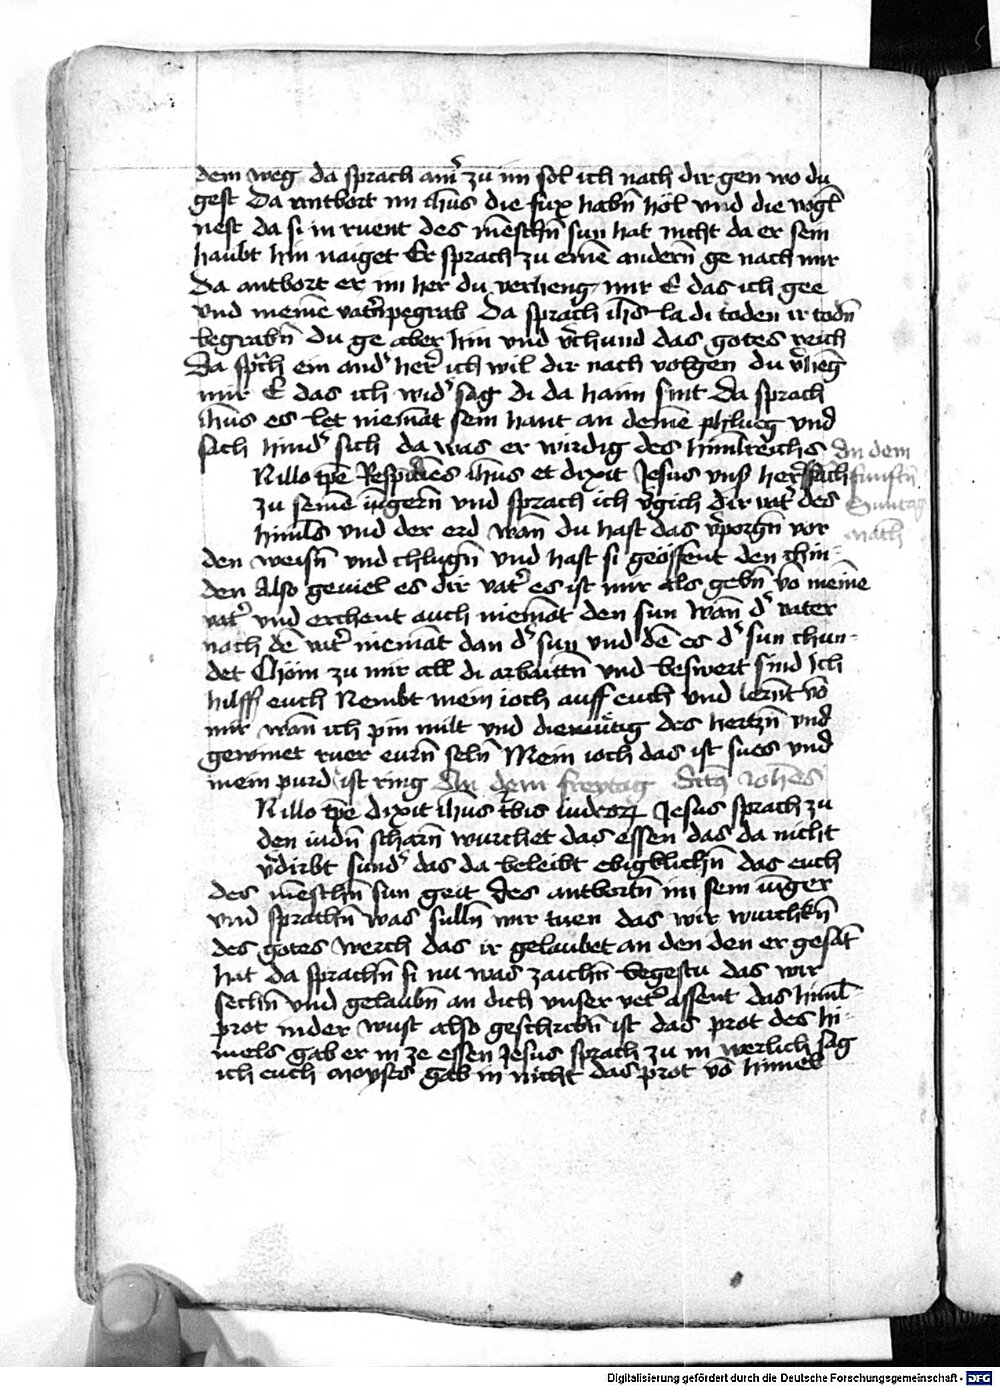 dem weg da sprach ainr̉ zu im sol ich nach dir gen wo du
gest Da antbort im ih̄us die fux habn̄ hol vnd die vogl̄
nest da si in ruent des mēschn̄ sun hat nicht da er sein
haubt hin naiget Er sprach zu einē andern̄ ge nach mir
Da antbort er im her du verheng mir E das ich gee
vnd meinē vatn̄ pegrab Da sprach ih̄s la di toden ir todn̄
begrabn̄ du ge aber hin vnd v̉chund das gotes reich
Da sp̉ch ein and̉ her̉ ich wil dir nach volgen du v̉hēg
mir E das ich wid̉ sag di da haim sint Da sprach
ih̄us es let niemāt sein hant an deinē phlueg vnd
sach hind̉ sich da was er wirdig des himlreichs
An dem
funftn̄
Suntag
nach
N illo tp̄e Respōdēs ih̄us et dixit Jesus vnß her̉ sach
zu seinē iūgern̄ vnd sprach ich v̉gich dir vat̉ des
himls vnd der erd wan̄ du hast das v̉porgn̄ vor
den weisn̄ vnd chlugn̄ vnd hast si geöffent den chin-
den Also geviel es dir vat̉ es ist mir als gebn̄ vō meinē
vat̉ vnd erchent auch niemāt den sun wan̄ d̉ vater
nach dē vat̉ niemāt dan d̉ sun vnd dē es d̉ sun chun-
det Chöm zu mir all di arbaittn̄ vnd beswert sind Ich
hilff euch Nembt mein ioch auff euch vnd lernt vō
mir wan̄ ich pin milt vnd diemütig des hertzn̄ vnd
gewinet ruer eurn̄ seln̄ Mein ioch das ist sues vnd
mein purd ist ring An dem freytag Johēs
N illo tp̄e dixit ih̄us t̉bis iudeoꝝ Jesus sprach zu
den iudn̄ scharn̄ wurchet das essen das da nicht
v̉dirbt sund̉ das da beleibt ebigklichn̄ das euch
des mēschn̄ sun geit des antbortn̄ im sein iūger
vnd sprachn̄ was sulln̄ wir tuen das wir wurchn̄
des gotes werch das ir gelaubet an den den er gesāt
hat da sprachn̄ si nu was zaichn̄ begestu das wir
sechn̄ vnd gelaubn̄ an dich vnser vet̉ assent das himl-
prot inder wust also geschribn̄ ist das prot des hi-
mels gab er in ze essen Jesus sprach zu in werlich sag
ich euch moyses gab in nicht das prot vō himel
Digitalisierung gefördert durch die Deutsche Forschungsgemeinschaft - DFG